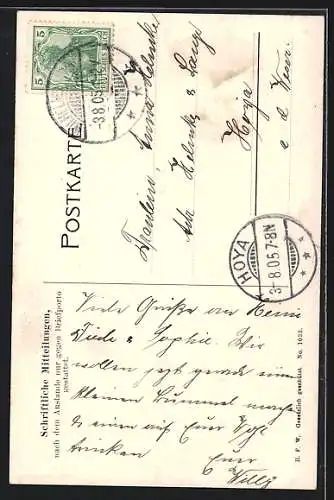 5 5
-3.8.05
POSTKARTE
Fräulein Anna
Adr. & Lange
Hoya
a d Weser.
HOYA
3-8.05.7-8N
Schriftliche Mitteilungen,
nach dem Auslande nur gegen Briefporto
gestattet.
Viele Grüße von
& Sophie. Wir
wollen jetzt gerade einen
kleinen Bummel machen
& einen auf Euer Wohl
trinken Euer
Willy
No. 1032.
Gesetzlich geschützt.